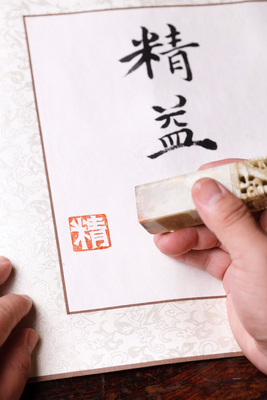 精
益
精